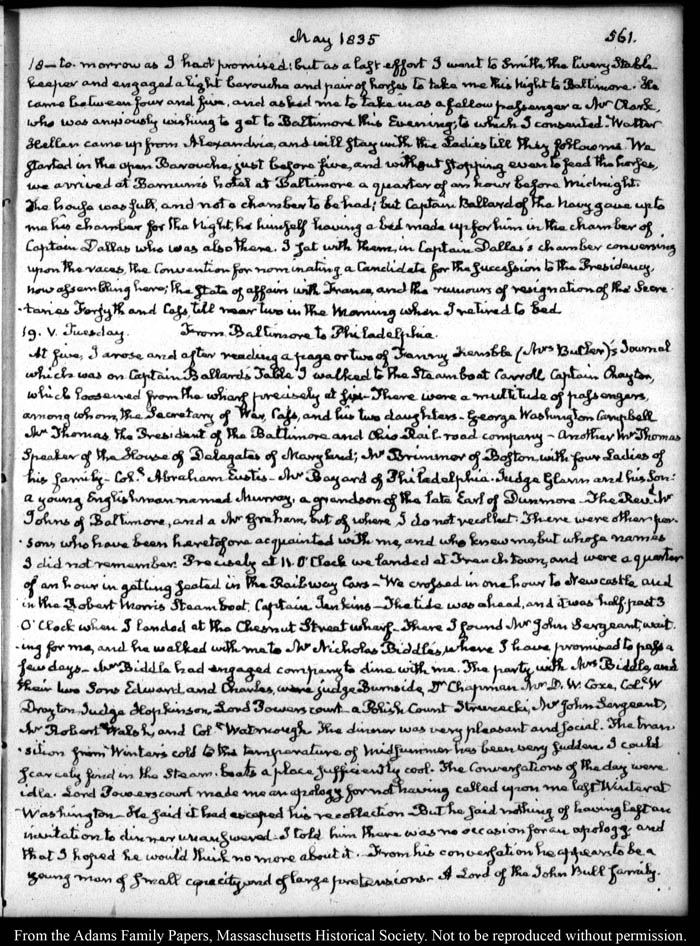 May 1835 561.
18 — to-morrow as I had promised: but as a last effort I went to Smith the livery Stable
keeper and engaged a light barouche and pair of horses to take me this Night to Baltimore. He
came between four and five, and asked me to take in as a fellow passenger a Mr Clark,
who was anxiously wishing to get to Baltimore this Evening; to which I consented. Walter
Hellen came up from Alexandria, and will stay with the Ladies till they follow me. We
started in the open Barouche, just before five, and without stopping even to feed the horses,
we arrived at Barnum's hotel at Baltimore a quarter of an hour before Midnight.
The house was full, and not a chamber to be had; but Captain Ballard of the Navy gave up to
me his chamber for the Night, he himself having a bed made up for him in the chamber of
Captain Dallas who was also there. I sat with them, in Captain Dallas's chamber conversing
upon the races, the Convention for nominating a Candidate for the succession to the Presidency,
now assembling here; the State of affairs with France, and the rumours of resignation of the Secre-
-taries Forsyth and Cass till near two in the Morning when I retired to bed
19. V. Tuesday. From Baltimore to Philadelphia.
At five, I arose and after reading a page or two of Fanny Kemble (Mrs Butler)'s Journal
which was on Captain Ballard's Table I walked to the Steamboat Carroll Captain Chaytor,
which loosened from the wharf precisely at six — There were a multitude of passengers,
among whom, the Secretary of War, Cass, and his two daughters — George Washington Campbell
Mr Thomas, the President of the Baltimore and Ohio Rail-road company — Another Mr Thomas
Speaker of the House of Delegates of Maryland; Mr Brimmer of Boston, with four Ladies of
his family — Col. Abraham Eustis — Mr Bayard of Philadelphia. Judge Glenn and his Son:
a young Englishman named Murray, a grandson of the late Earl of Dunmore — The Revd Mr
Johns of Baltimore, and a Mr Graham, but of where I do not recollect. There were other per-
-sons who have been heretofore acquainted with me, and who knew me, but whose names
I did not remember. Precisely at 11. O'Clock we landed at Frenchtown, and were a quarter
of an hour in getting seated in the Railway Cars — We crossed in one hour to Newcastle and
in the Robert Morris Steam boat, Captain Jenkins — The tide was ahead, and it was half-past 3
O'Clock when I landed at the Chesnut Street wharf — There I found Mr John Sergeant, wait-
-ing for me, and he walked with me to Mr Nicholas Biddle's, where I have promised to pass a
few days — Mr Biddle had engaged company to dine with me. The party with Mrs Biddle, and
their two Sons Edward and Charles, were judge Burnside, Dr Chapman Mr D. W. Coxe, Col. W
Drayton, Judge Hopkinson, Lord Powerscourt — a Polish Count, Mr John Sergeant,
Mr Robert Walsh, and Col. Watmough. The dinner was very pleasant and social. The tran-
-sition from Winter's cold to the temperature of Midsummer has been very sudden. I could
scarcely find in the Steam-boats a place sufficiently cool. The Conversations of the day were
idle. Lord Powerscourt made me an apology for not having called upon me last Winter at
Washington — He said it had escaped his recollection — But he said nothing of having left an
invitation to dinner unanswered — I told him there was no occasion for an apology and
that I hoped he would think no more about it. From his conversation he appears to be a
young man of small capacity and of large pretensions — A Lord of the John Bull family.
From the Adams Family Papers, Massachusetts Historical Society. Not to be reproduced without permission.